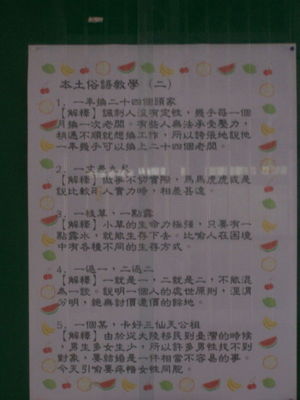 本土俗語教學（二）
1、一年換二十四個頭家
【解釋】諷刺人沒有定性，幾乎每一個
月換一次老闆。有些人無法承受壓力，
稍遇不順就想換工作，所以誇張地說他
一年幾乎可以換上二十四個老闆。
2、一丈差九尺
【解釋】做事不切實際，馬馬虎虎或是
說比較兩人實力時，相差甚遠。
3、一枝草，一點露
【解釋】小草的生命力極強，只要有一
點露水，就能生存下去。比喻人在困境
中有各種不同的生存方式。
4、一過一，二過二
【解釋】一就是一，二就是二，不能混
為一談。說明一個人的處世原則，涇渭
分明，絕無討價還價的餘地。
5、一個某，卡好三仙天公祖
【解釋】由於從大陸移民到臺灣的時候
，男生多女生少，所以許多男性找不到
對象，要結婚是一件相當不容易的事。
今天引喻要疼惜女性同胞。